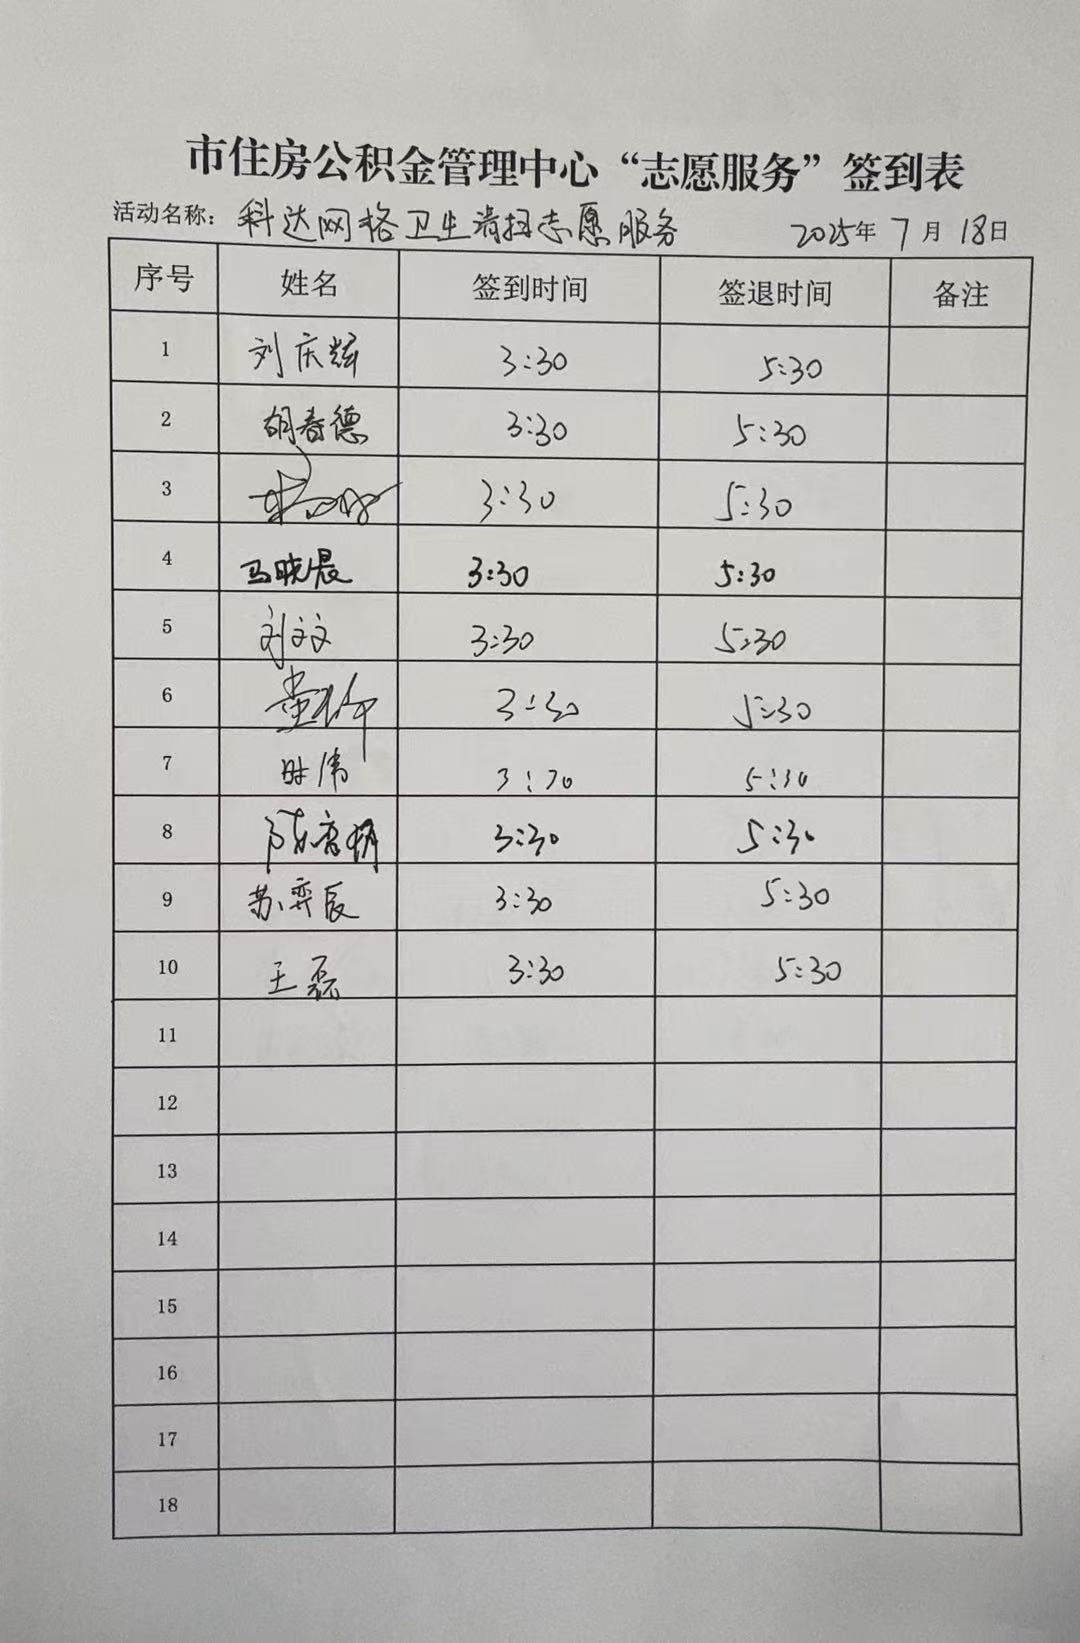 市住房公积金管理中心“志愿服务”签到表
活动名称: 科达网格卫生清扫志愿服务 2025年 7月 18日
序号 姓名 签到时间 签退时间 备注
1 刘庆辉 3:30 5:30
2 胡春德 3:30 5:30
3 3:30 5:30
4 马晓晨 3:30 5:30
5 刘文文 3:30 5:30
6 3:30 5:30
7 时伟 3:30 5:30
8 3:30 5:30
9 苏弈辰 3:30 5:30
10 王磊 3:30 5:30
11
12
13
14
15
16
17
18